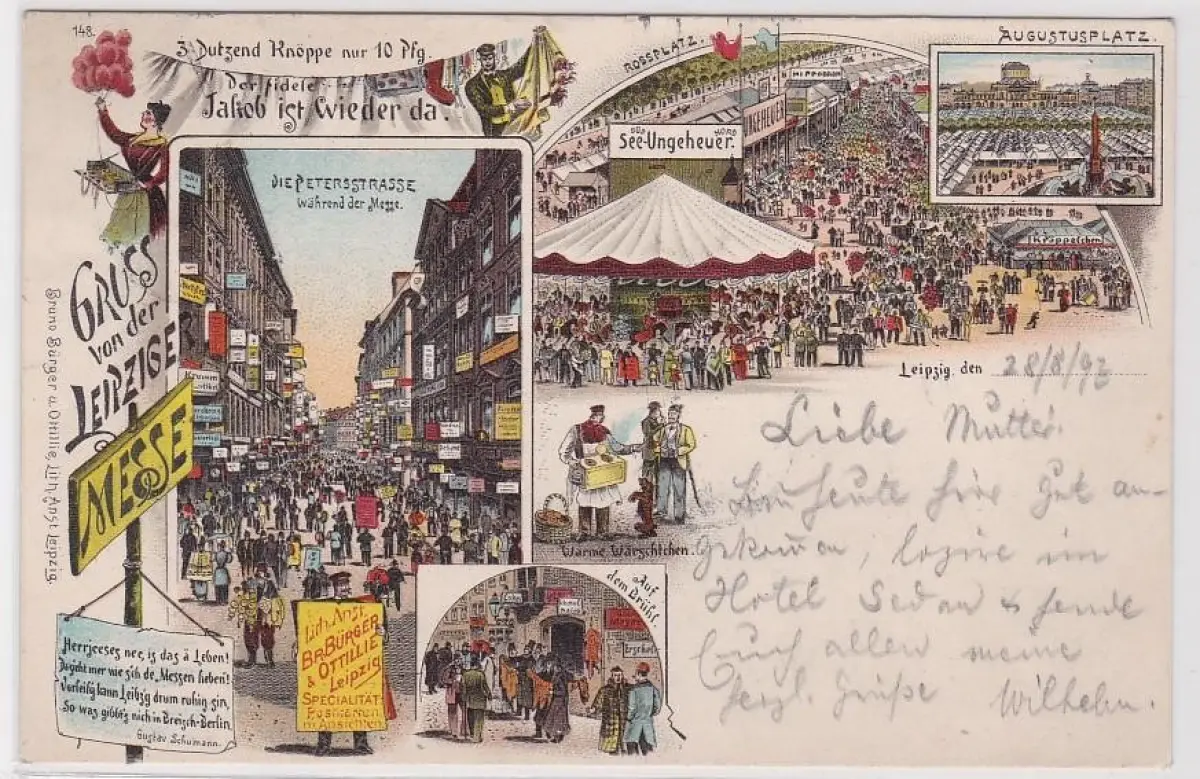 148.
3 Dutzend Knöppe nur 10 Pfg.
Der fidele
Jakob ist wieder da.
ROSSPLATZ.
AUGUSTUSPLATZ.
HIPPODROM
SÜD NORD
See-Ungeheuer.
Kräppelchen
DIE PETERSSTRASSE
während der Messe.
GRUSS
von der
LEIPZIGER
MESSE
Bruno Bürger u. Ottillie, Lith. Anst. Leipzig.
Leipzig, den 28/8/93
Liebe Mutter.
Bin heute hier gut an-
gekommen, logire im
Hotel Sedan & sende
Euch allen meine
herz Grüße Wilhelm.
Warme Wärschtchen.
Auf
dem Brühl
Herrjeeses nee, is das ä Leben!
Da geht mer wie sich de Messen heben!
Derheilg kann Leibzg drum ruhig sin,
So was gibbt's nich in Breisch-Berlin
Gustav Schumann.
Lith. Anst.
BR. BÜRGER
& OTTILLIE
Leipzig
SPECIALITÄT:
Postkarten
m. Ansichten